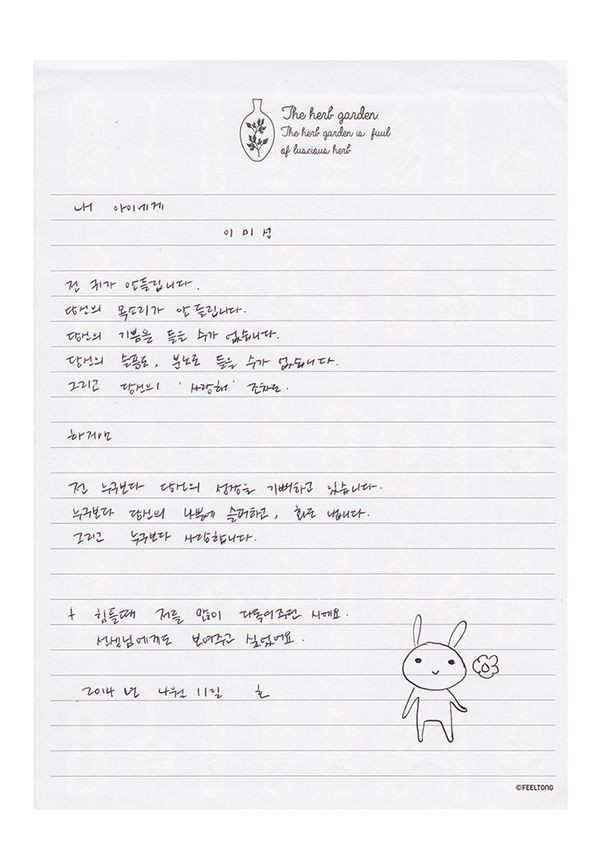 The herb garden
The herb garden is fuul
of luscious herb
내 아이에게
이미성
전 귀가 안들립니다.
당신의 목소리가 안 들립니다.
당신의 기쁨을 들을 수가 없습니다.
당신의 슬픔도, 분노도 들을 수가 없습니다.
그리고 당신의 '사랑해' 조차도.
하지만
전 누구보다 당신의 성장을 기뻐하고 있습니다.
누구보다 당신의 나쁨에 슬퍼하고, 화도 냅니다.
그리고 누구보다 사랑합니다.
+ 힘들때 저를 많이 다독여주던 시에요.
선생님에게도 보여주고 싶었어요.
2014년 11일
©FEELTONG